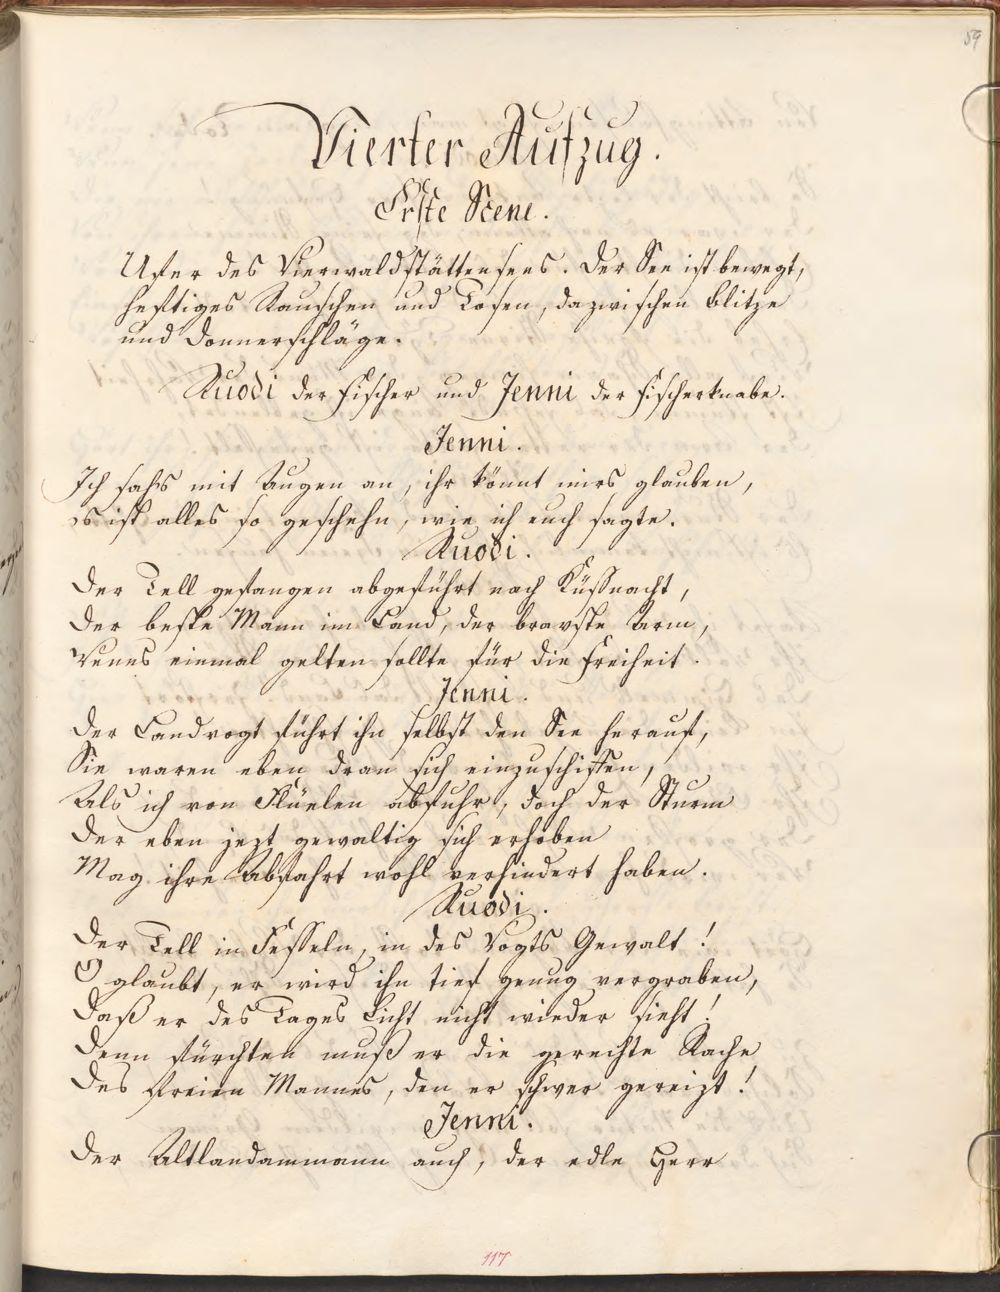 59
Vierter Aufzug.
Erste Scene.
Ufer des Vierwaldstättensees. Der See ist bewegt,
heftiges Rauschen und Tosen, dazwischen Blitze
und Donnerschläge.
Ruodi der Fischer und Jenni der Fischerknabe.
Jenni.
Ich sahs mit Augen an, ihr könnt mirs glauben,
's ist alles so geschehn, wie ich euch sagte.
Ruodi.
Der Tell gefangen abgeführt nach Küßnacht,
Der beste Mann im Land, der bravste Arm,
Wenns einmal gelten sollte für die Freiheit.
Jenni.
Der Landvogt führt ihn selbst den See herauf,
Sie waren eben dran sich einzuschiffen,
Als ich von Flüelen abfuhr, doch der Sturm
Der eben jezt gewaltig sich erhoben
Mag ihre Abfahrt wohl verhindert haben.
Ruodi.
Der Tell in Fesseln, in des Vogts Gewalt!
O glaubt, er wird ihn tief genug vergraben,
Daß er des Tages Licht nicht wieder sieht!
Denn fürchten muß er die gerechte Rache
Des freien Mannes, den er schwer gereizt!
Jenni.
Der Altlandammann auch, der edle Herr
117